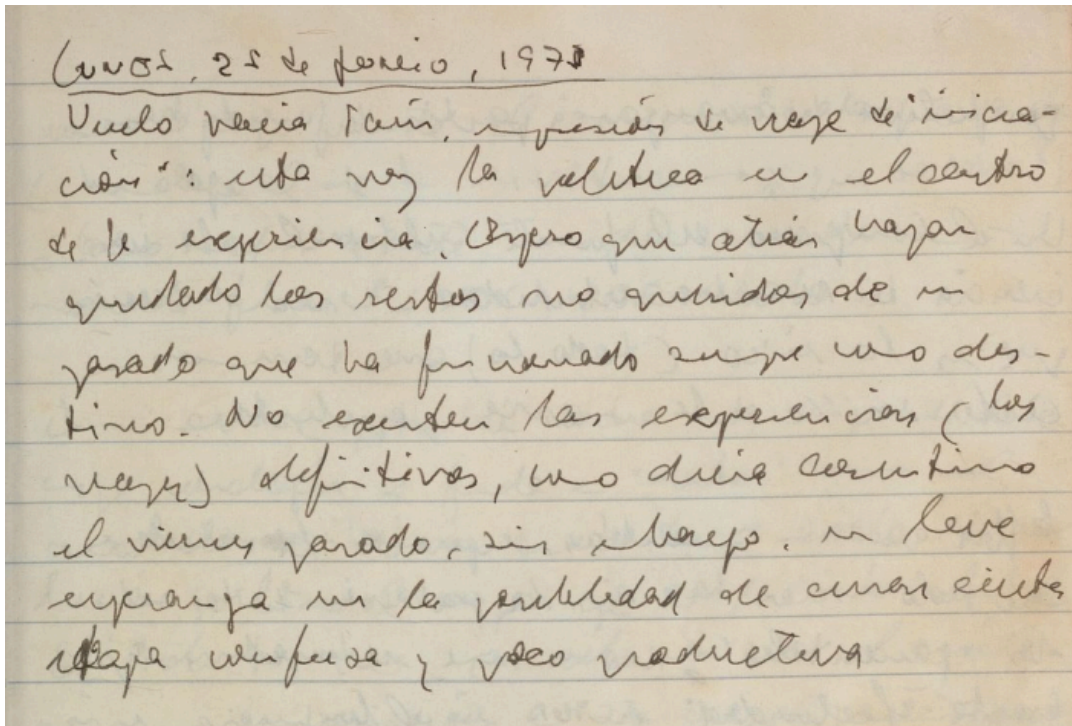 Lunes, 21 de junio, 1971
Vuelo hacia París, impresión de viaje de "inicia-
ción": esta vez la política en el centro
de la experiencia. Espero que atrás hayan
quedado los restos no queridos de un
pasado que ha funcionado siempre como des-
tino. No existen las experiencias (los
viajes) definitivas, como decía
el viernes pasado, sin embargo, un leve
esperanza en la posibilidad de cerrar cierta
etapa confusa y poco productiva